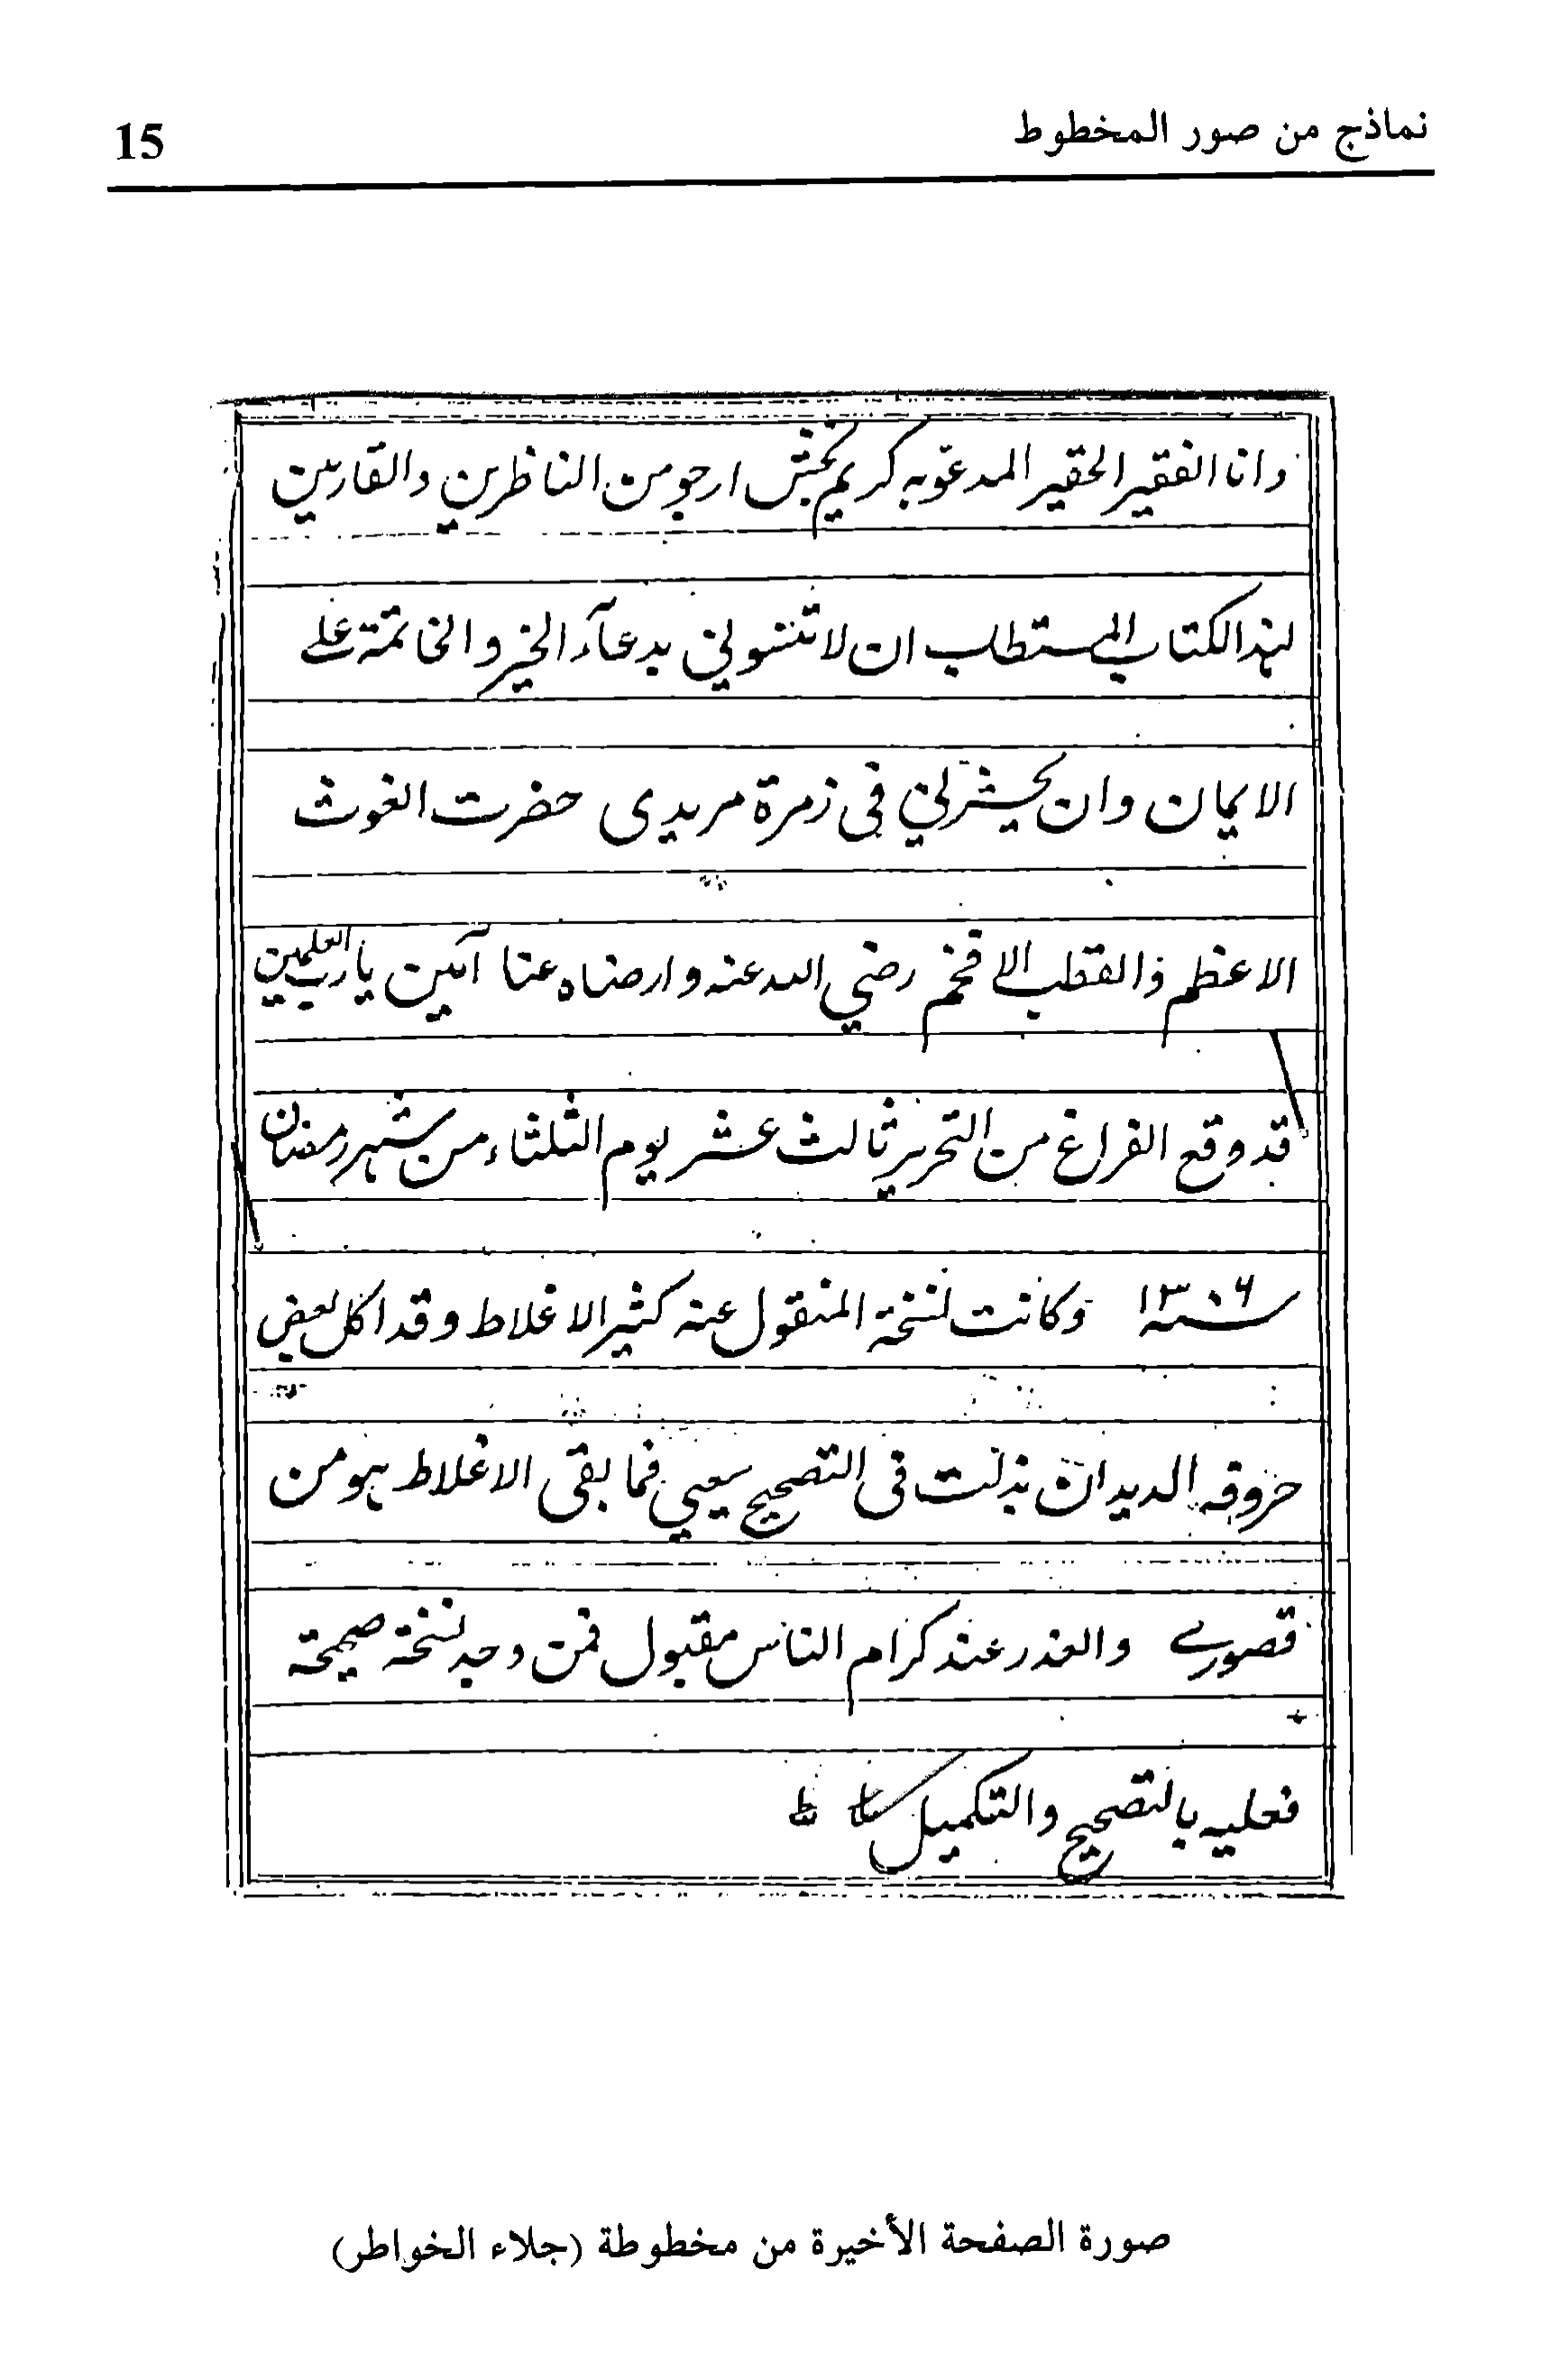 نماذج من صور المخطوط
15
وانا الفقير الحقير المدعو به كريم بخش ارجو من الناظرين والقاريين
لهذ الكتاب المستطاب ان لا تنسوني بدعاء الخير والخاتمة على
الايمان وان يحشرني في زمرة مريدى حضرت الغوث
الاعظم والقطب الافخم رضي الله عنه وارضاه عنا آمين يا رب العلمين
قد وقع الفراغ من التحرير ثالث عشر يوم الثلثاء من شهر رمضان
سنه ۱۳۰۶ وكانت نسخة المنقول عنه كثير الاغلاط وقد اكل بعض
حروفه الديدان بذلت في التصحيح سعيي فما بقى الاغلاط هو من
قصورے والعذر عند كرام الناس مقبول فمن وجد نسخة صحيحة
فعليه بالتصحيح والتكميل
صورة الصفحة الأخيرة من مخطوطة (جلاء الخواطر)